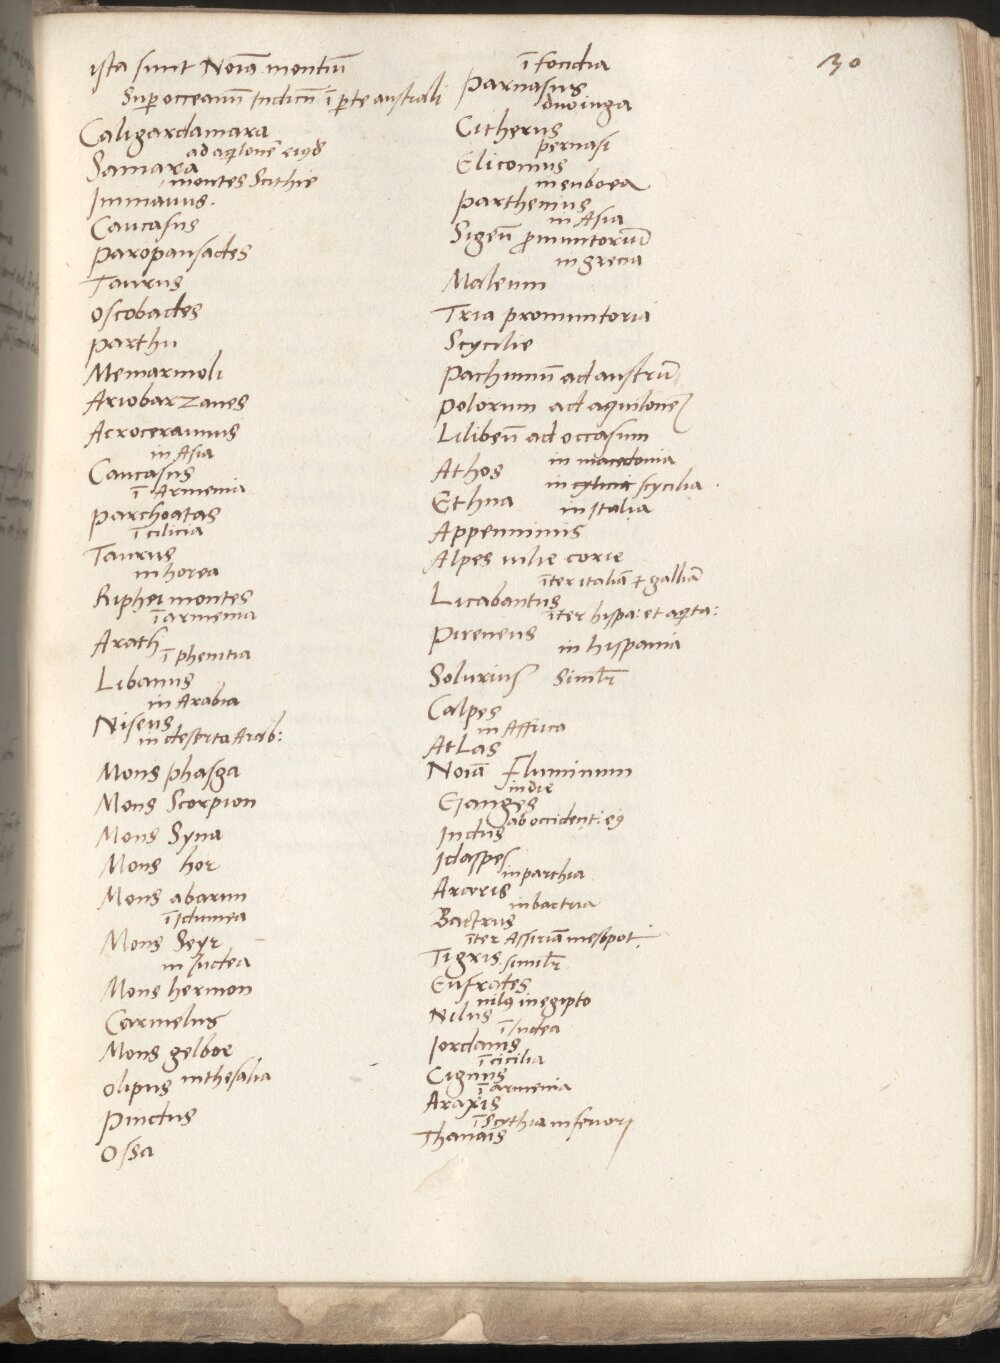 30
ista sunt Noĩa montiũ
Sup occeanũ Indicũ ĩ pte australi
Caligardamara
ad aqlonẽ eiꝰ
Samara
montes Scithie
Immauus.
Caucasus
Paropansades
Taurus
Oscobades
Parthu
Memarmoli
Ariobarzanes
Acroceraunus
in Asia
Caucasus
ĩ Armenia
Parchoatas
ĩ cilicia
Taurus
in horea
Riphei montes
ĩ armenia
Arath
ĩ phenitia
Libanus
in Arabia
Niseus
in deserta Arab:
Mons phasga
Mons Scorpion
Mons Syna
Mons hor
Mons abarim
ĩ Idumea
Mons Seyr
in Iudea
Mons hermon
Carmelus
Mons gelboe
Olipus in thesalia
Pindus
Ossa
ĩ focidia
Parnasus
duo iuga
Citherus
pernasi
Eliconius
in euboea
Parthenius
in Asia
Sigeũ promuntoriũ
in grecia
Maleum
Tria promuntoria
Scycilie
Pachinũ ad austrũ
Polorum ad aquilonẽ
Lilibeũ ad occasum
in macedonia
Athos
in scycilia
Ethna
in Italia
Appenninis
Alpes iulie corie
ĩter italiã & galliã
Licabantus
ĩter hispa: et aqta:
Pireneus
in hispania
Solurius Similr
Calpes
in Affrica
Atlas
Noĩa Fluminum
indie
Ganges
ab occident: eꝰ
Indus
Idaspes
in parthia
Araris
in bactria
Bactrus
ĩter Assiriam mesopot:
Tigris. similr
Eufrates
nilꝰ in egipto
Nilus
ĩ Iudea
Iordanis
ĩ cicilia
Cignus
ĩ armenia
Araxis
ĩ Scythia inferiori
Thanais